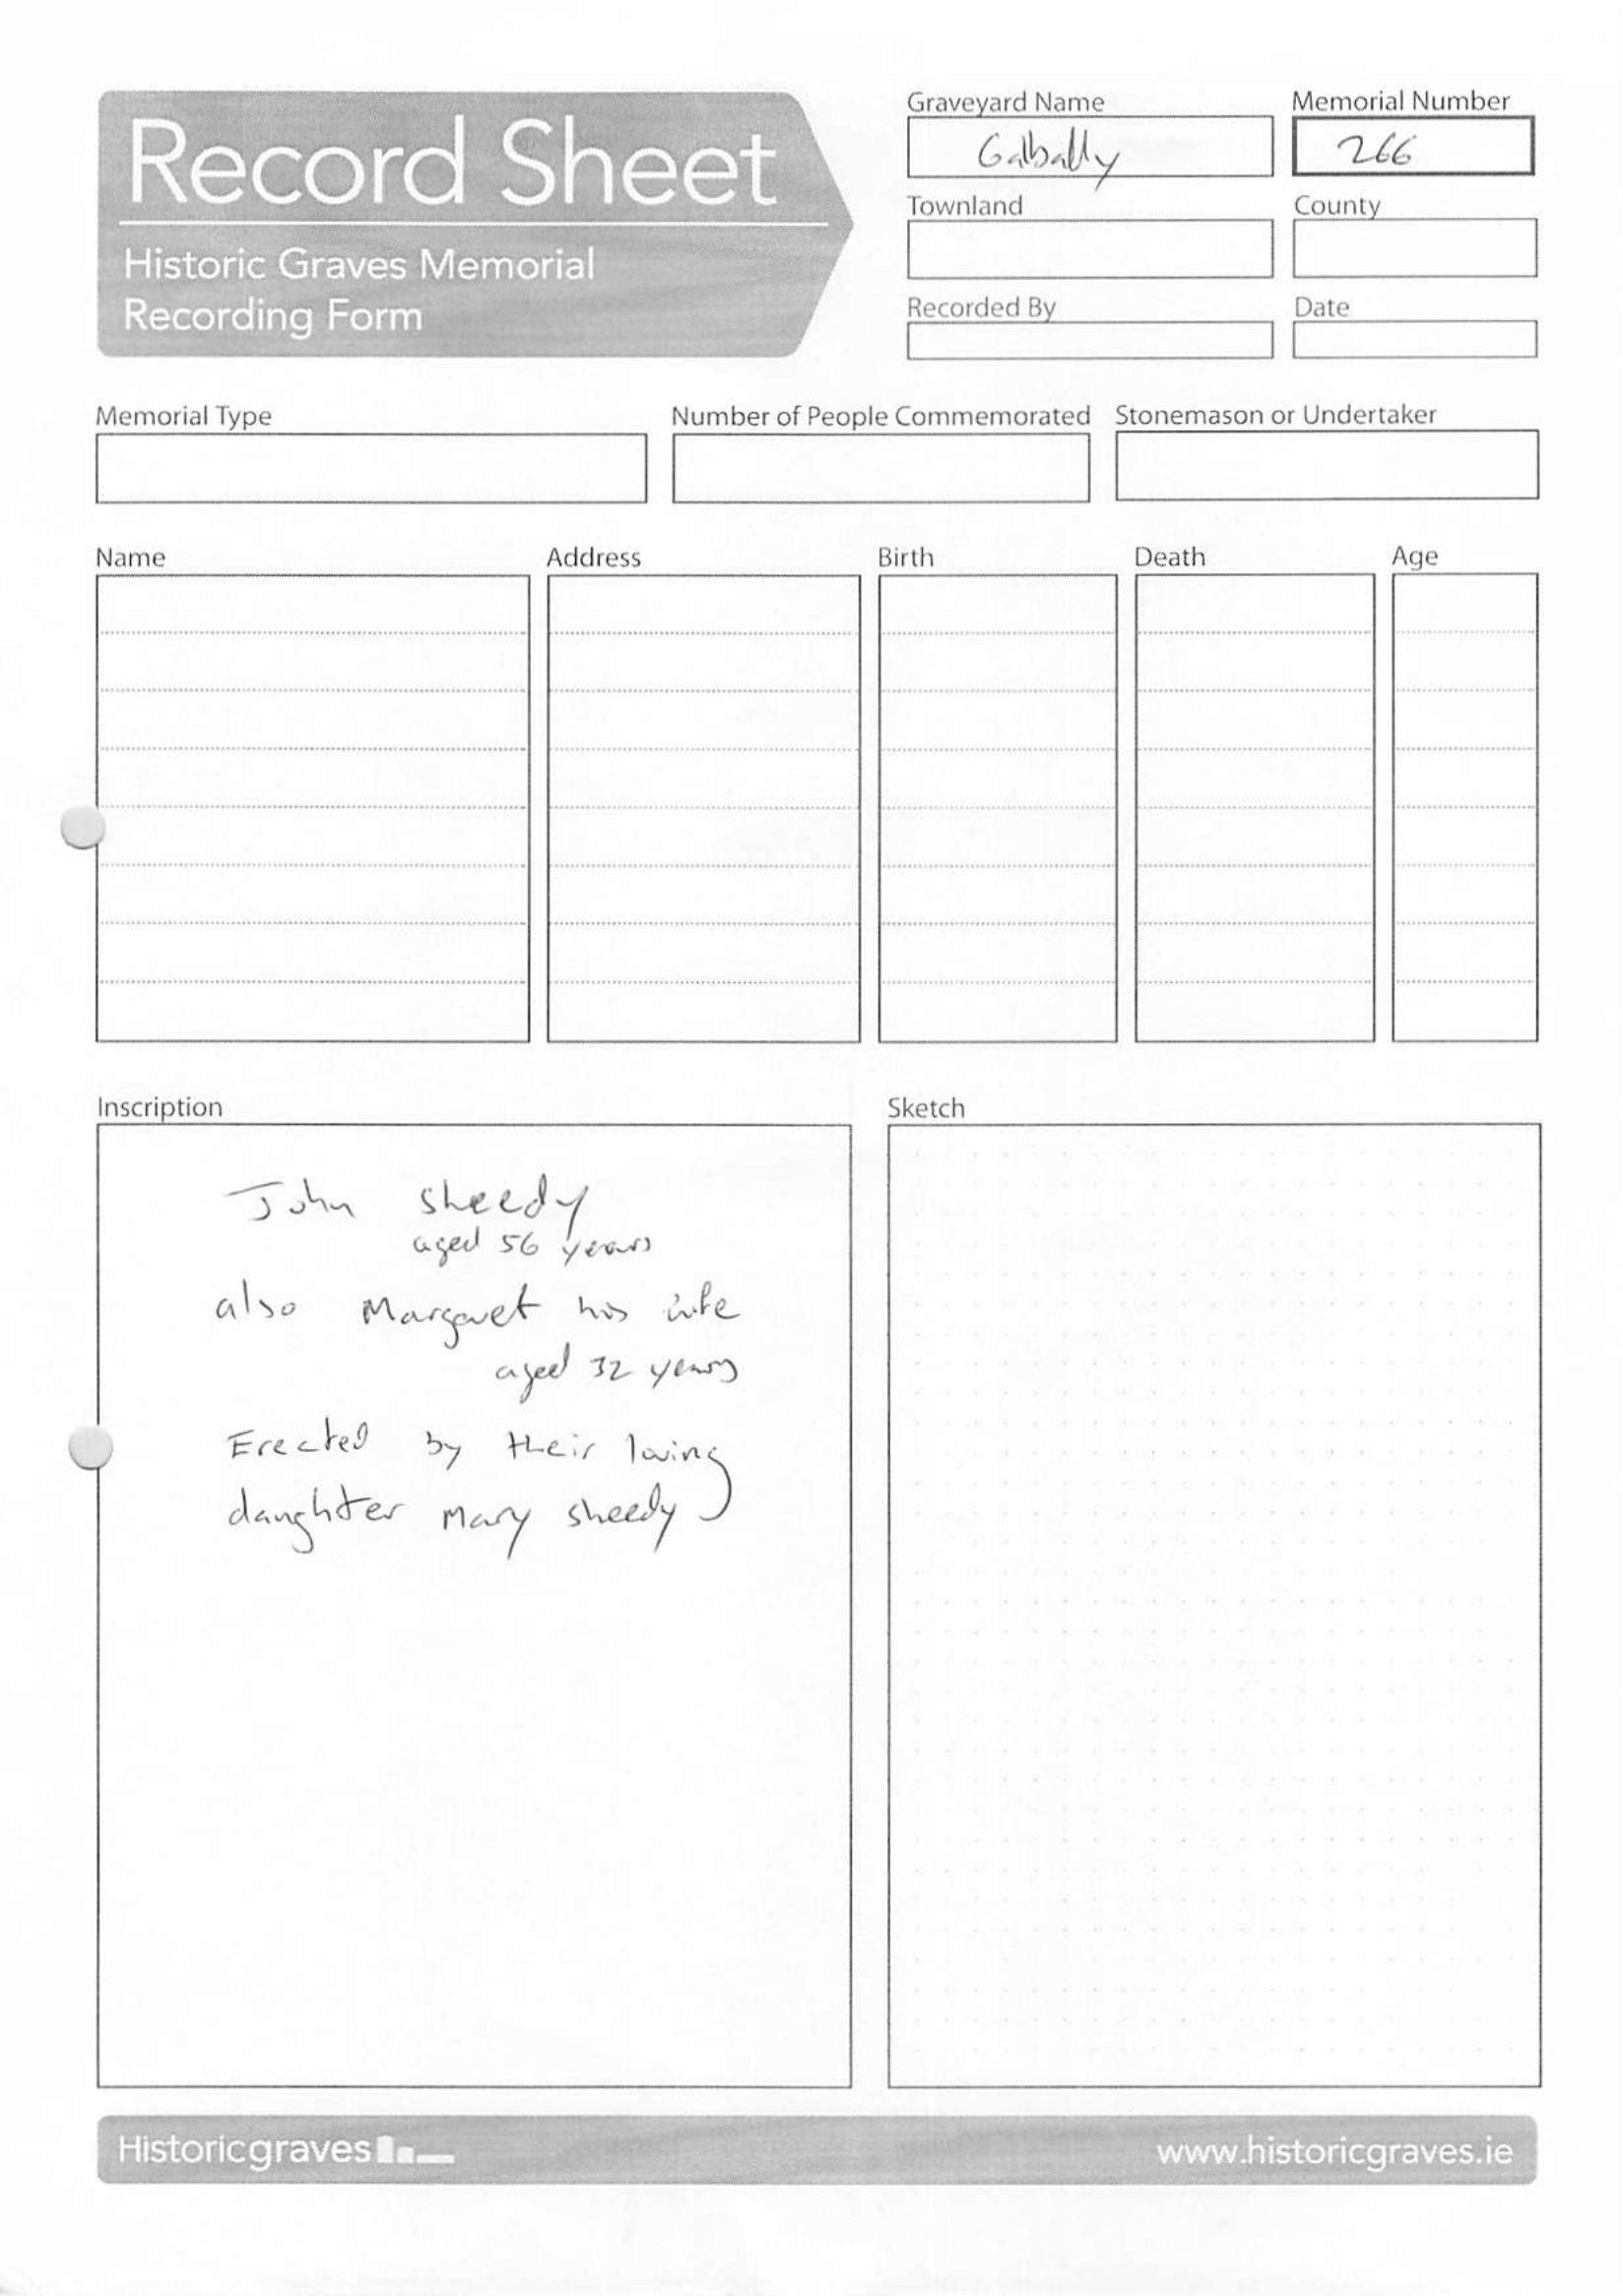 Record Sheet
Historic Graves Memorial
Recording Form
Graveyard Name
Galbally
Memorial Number
266
Townland
County
Recorded By
Date
Memorial Type
Number of People Commemorated
Stonemason or Undertaker
Name
Address
Birth
Death
Age
Inscription
John Sheedy
aged 56 years
also Margaret his wife
aged 32 years
Erected by their loving
daughter Mary Sheedy
Sketch
Historicgraves
www.historicgraves.ie